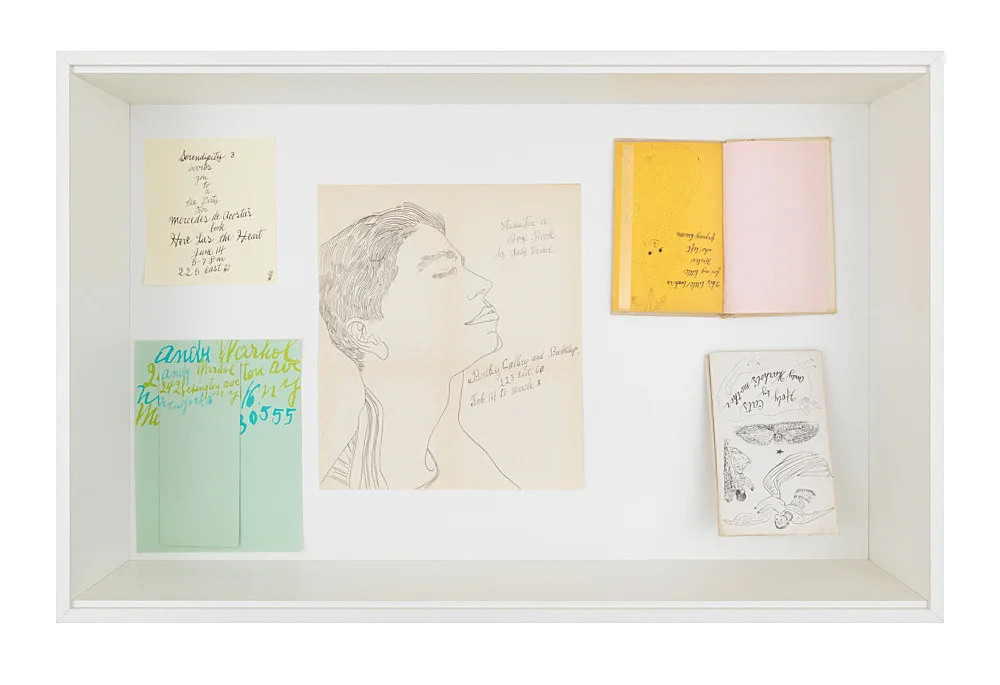 Serendipity 3
invites
you
to
a
tea Party
for
mercedes de Acosta's
book
Here Lies the Heart
June 14
5-7 P.m
225 east
studies for a
Boy Book
by Andy Warhol
Bodley Gallery and Bookshop,
223 East 60
Feb 14 to march 3
andy Warhol
andy Warhol
ton ave
242 Lexington ave
new york 16 n y
16 n y
Mu
30555
This little book is
for my little
who left
Holy Cats
by
Andy Warhol's mother